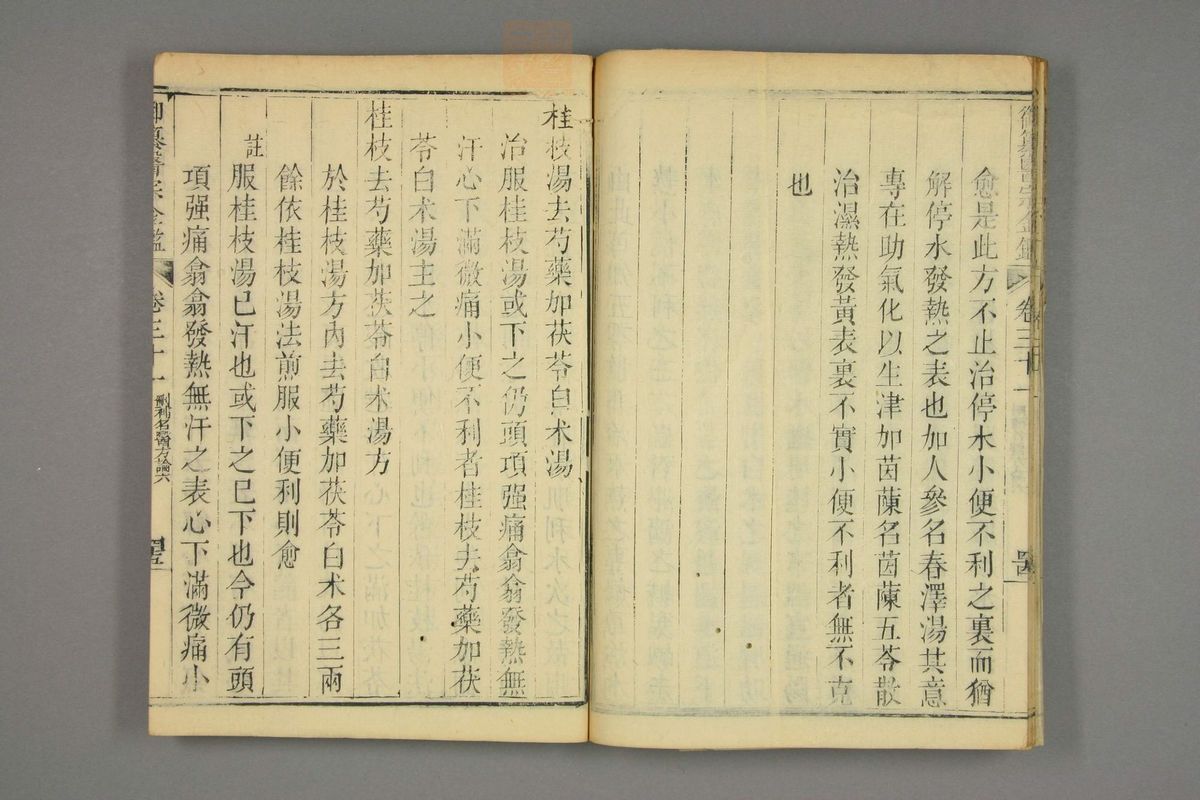 御纂醫宗金鑑 卷三十一
愈是此方不止治停水小便不利之裏而猶
解停水發熱之表也加人參名春澤湯其意
專在助氣化以生津加茵蔯名茵蔯五苓散
治濕熱發黃表裏不實小便不利者無不克
也
桂枝湯去芍藥加茯苓白术湯
治服桂枝湯或下之仍頭項强痛翕翕發熱無
汗心下滿微痛小便不利者桂枝去芍藥加茯
苓白术湯主之
桂枝去芍藥加茯苓白术湯方
於桂枝湯方內去芍藥加茯苓白术各三兩
餘依桂枝湯法煎服小便利則愈
註服桂枝湯已汗也或下之已下也今仍有頭
項强痛翕翕發熱無汗之表心下滿微痛小
御纂醫宗金鑑 卷三十一 刪補名醫方論六